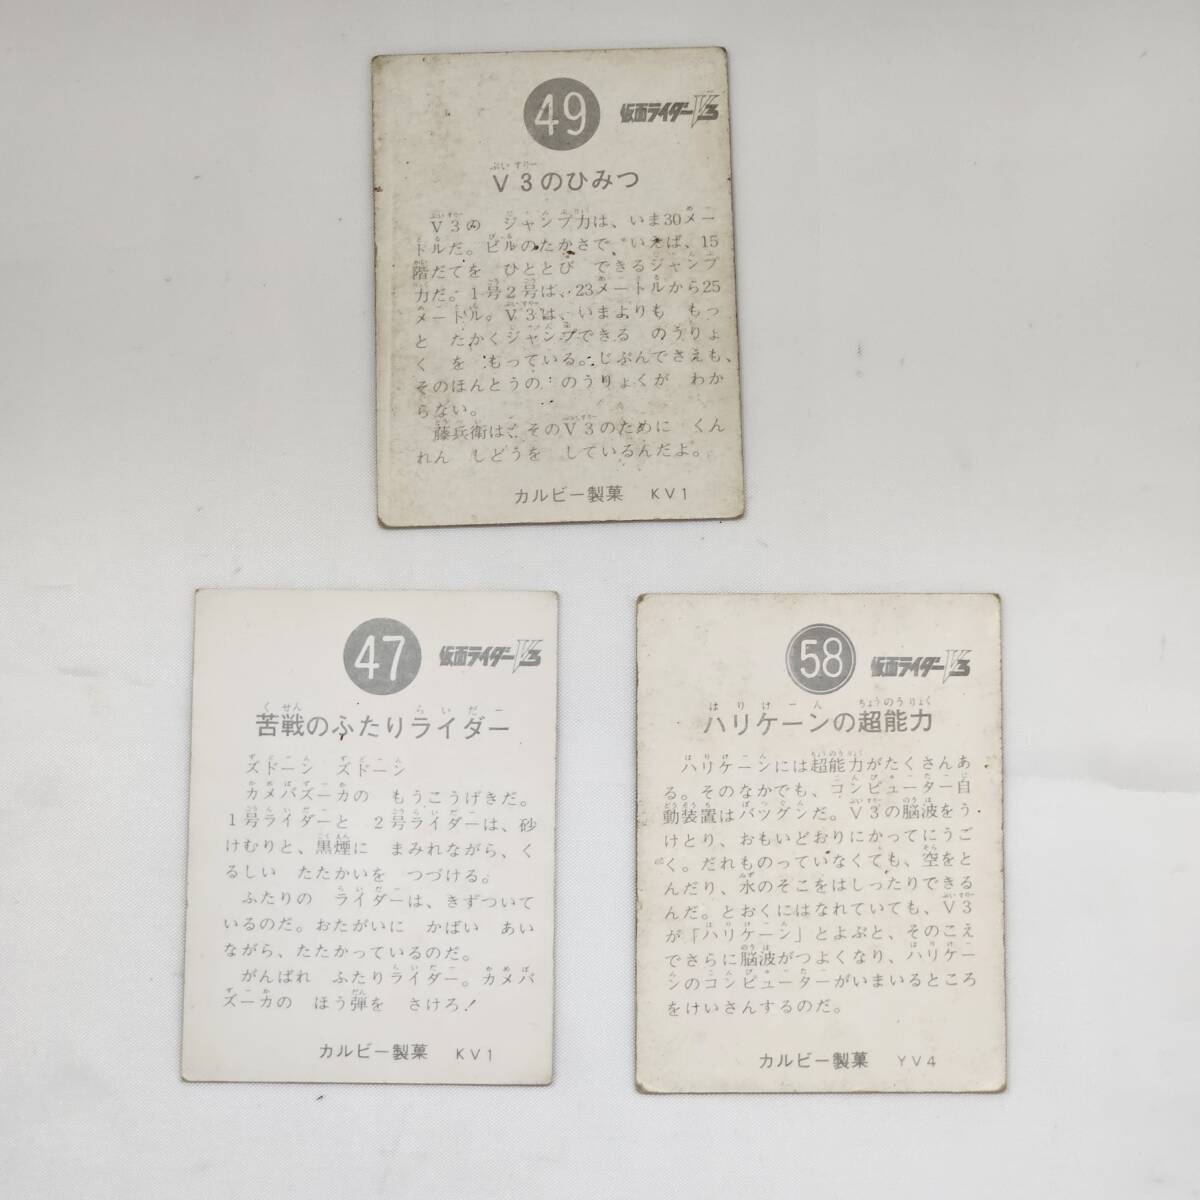 49
仮面ライダーV3
ぶいすりー
V3のひみつ
V3の ジャンプ力は、いま30メー
トルだ。ビルのたかさで、いえば、15
階だてを ひととび できるジャンプ
力だ。1号2号は、23メートルから25
メートル。V3は、いまよりも もっ
と たかくジャンプできる のうりょ
く を もっている。じぶんでさえも、
そのほんとうの のうりょくが わか
らない。
藤兵衛は、そのV3のために くん
れん しどうを しているんだよ。
カルビー製菓 KV1
47
仮面ライダーV3
くせん らいだー
苦戦のふたりライダー
ズドーン ズドーン
カメバズーカの もうこうげきだ。
1号ライダーと 2号ライダーは、砂
けむりと、黒煙に まみれながら、く
るしい たたかいを つづける。
ふたりの ライダーは、きずついて
いるのだ。おたがいに かばい あい
ながら、たたかっているのだ。
がんばれ ふたりライダー。カメバ
ズーカの ほう弾を さけろ!
カルビー製菓 KV1
58
仮面ライダーV3
はりけーん ちょうのうりょく
ハリケーンの超能力
ハリケーンには超能力がたくさんあ
る。そのなかでも、コンピューター自
動装置はバツグンだ。V3の脳波をう
けとり、おもいどおりにかってにうご
く。だれものっていなくても、空をと
んだり、水のそこをはしったりできる
んだ。とおくにはなれていても、V3
が「ハリケーン」とよぶと、そのこえ
でさらに脳波がつよくなり、ハリケー
ンのコンピューターがいまいるところ
をけいさんするのだ。
カルビー製菓 YV4